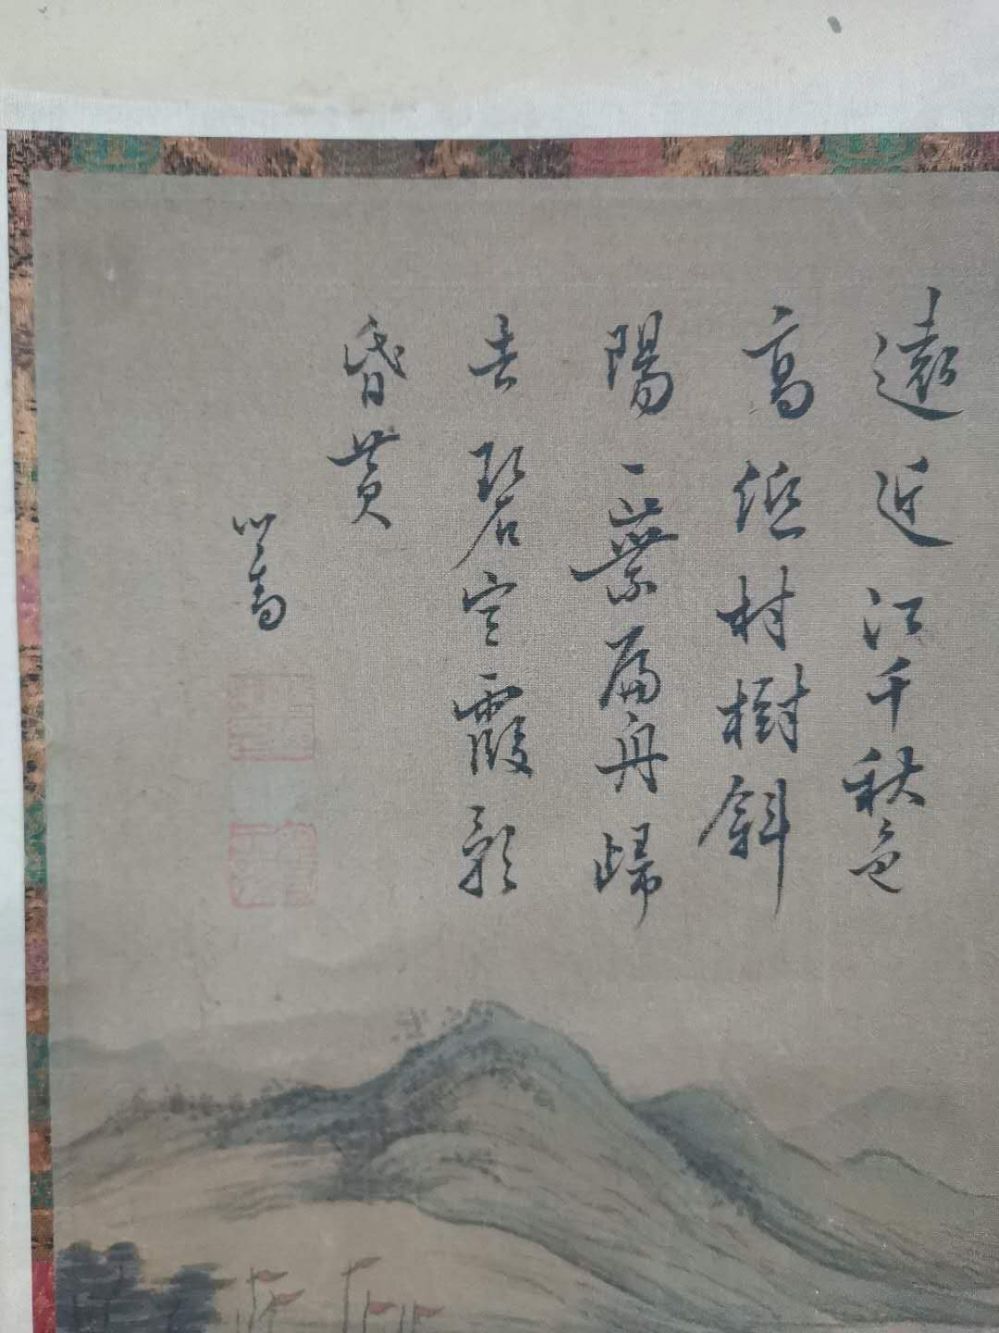 遠近江干秋色
高低村樹斜
陽一葉扁舟歸
去碧空霞影
昏黃
心畬